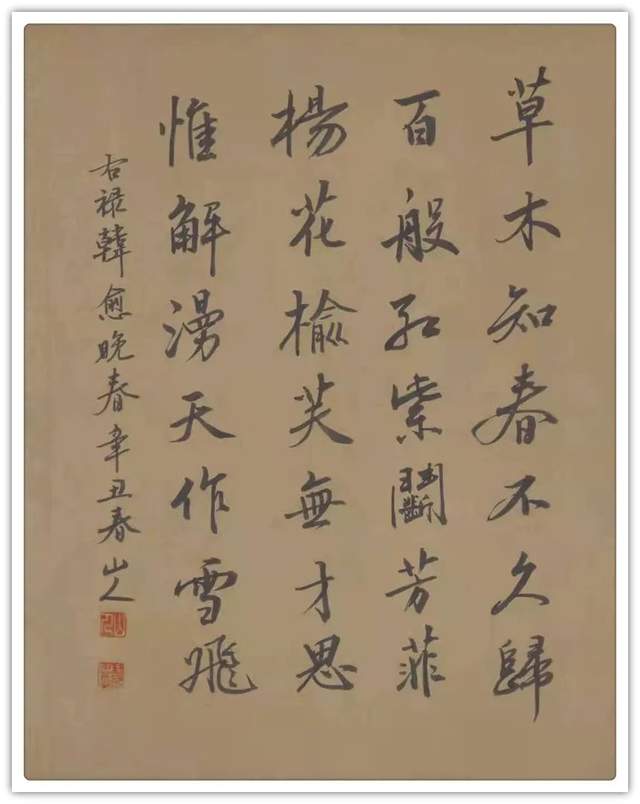 草木知春不久歸
百般紅紫鬭芳菲
楊花榆芙無才思
惟解漫天作雪飛
右禄韓愈晚春辛丑春山人